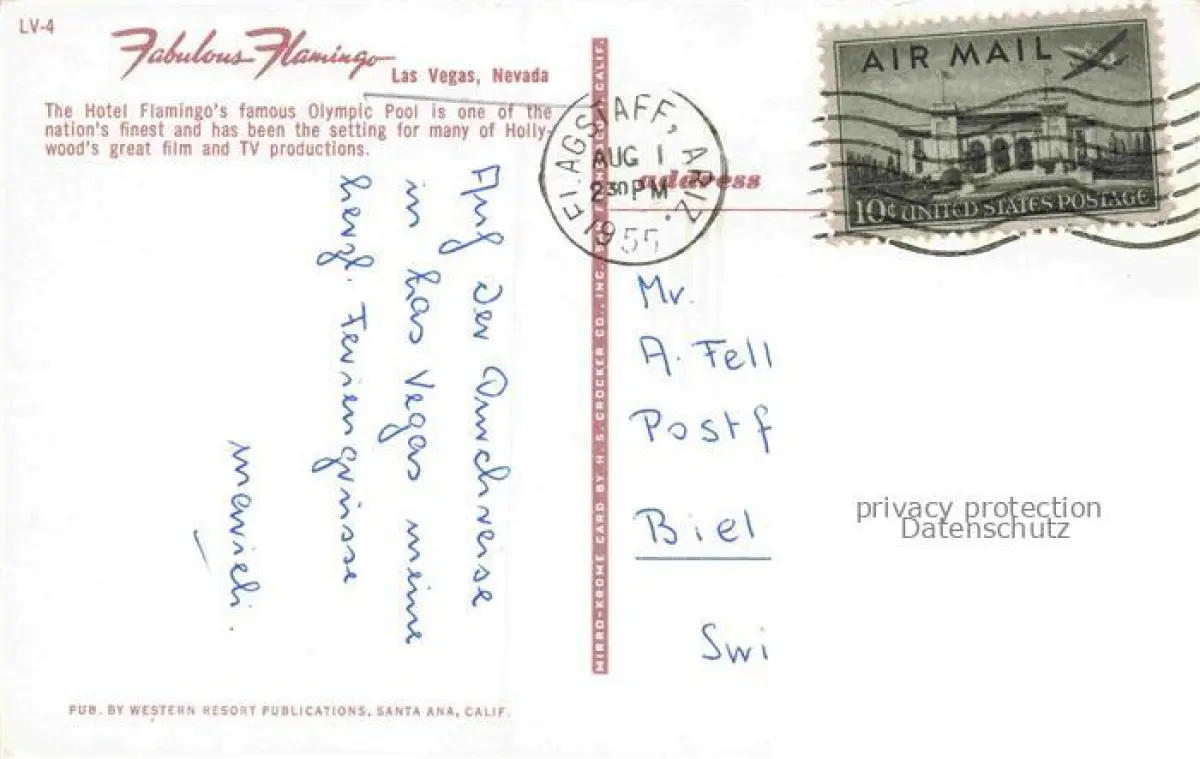 LV-4
Fabulous Flamingo
Las Vegas, Nevada
The Hotel Flamingo's famous Olympic Pool is one of the
nation's finest and has been the setting for many of Holly-
wood's great film and TV productions.
Auf der Durchreise
in Las Vegas meine
herzl. Feriengrüsse
PUB. BY WESTERN RESORT PUBLICATIONS, SANTA ANA, CALIF.
MIRRO-KROME CARD BY H. S. CROCKER CO., INC. SAN FRANCISCO, CALIF.
FLAGSTAFF, ARIZ.
AUG 1
230 PM
1955
address
AIR MAIL
10¢ UNITED STATES POSTAGE
Mr.
A. Fell
Postf
Biel
Swi
privacy protection
Datenschutz